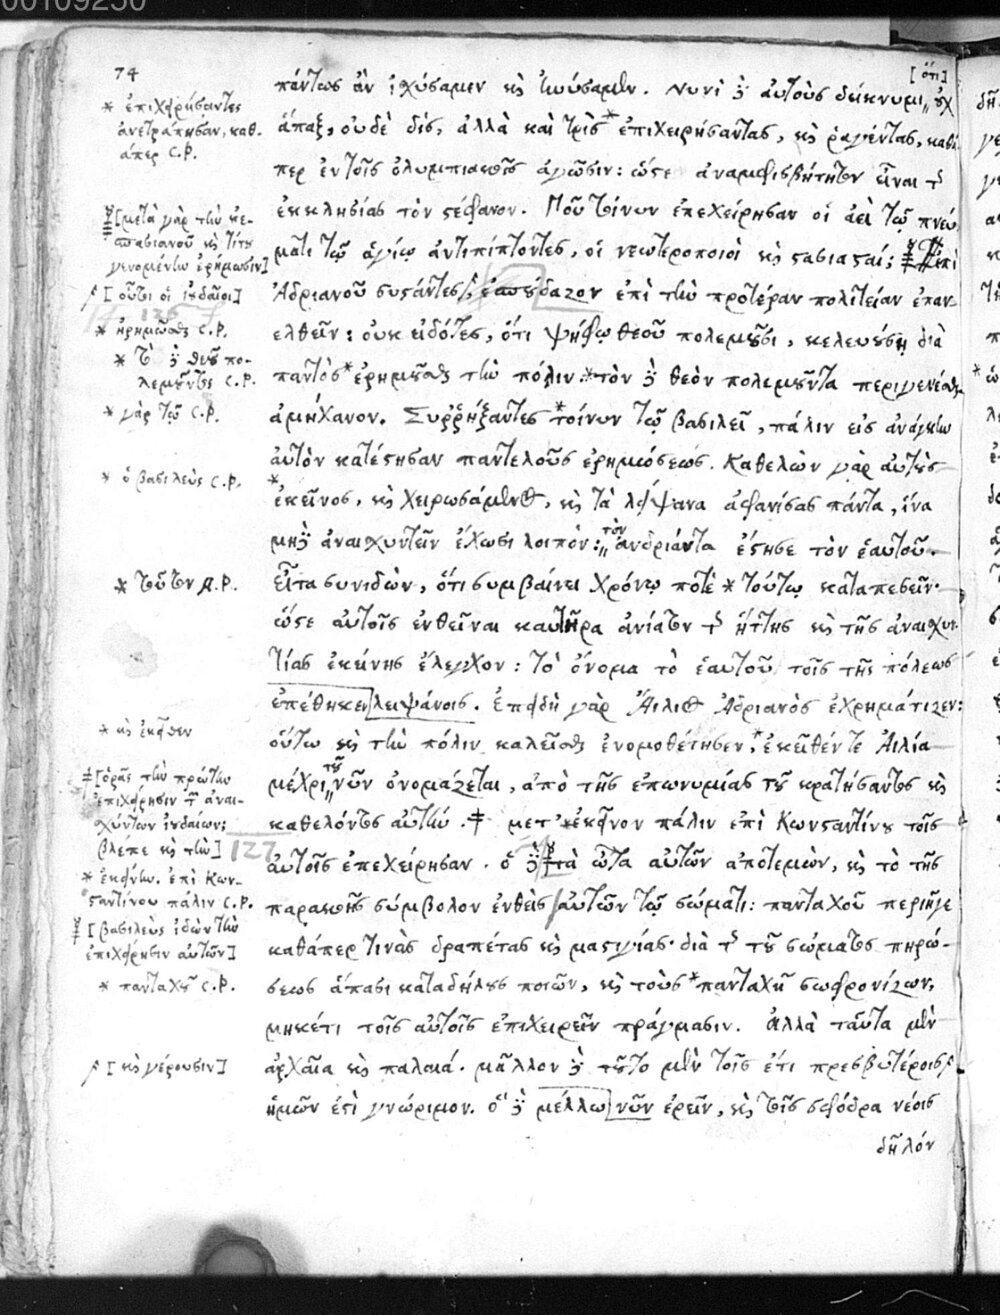 00109250
74
[ὅτι]
πάντως ἂν ἰχύσαμεν κ̀ς ἠνύσαμεν. νυνὶ δὲ αὐτοὺς δείκνυμι οὐχ
ἅπαξ, οὐδὲ δὶς, ἀλλὰ καὶ τρὶς * ἐπιχειρήσαντας, κ̀ς ῥαγέντας, καθά
περ ἐν τοῖς ὀλυμπιακοῖς ἀγῶσιν: ὥστε ἀναμφισβήτητον εἶναι τ῀
ἐκκλησίας τὸν στέφανον. Ποῦ τοίνυν ἐπεχείρησαν οἱ ἀεὶ τῷ πνεύ
ματι τῷ ἁγίῳ ἀντιπίπτοντες, οἱ νεωτεροποιοὶ κ̀ς στασιασταί; ἐπὶ
Ἀδριανοῦ συστάντες, ἐσπούδαζον ἐπὶ τὴν προτέραν πολιτείαν ἐπαν-
ελθεῖν: οὐκ εἰδότες, ὅτι ψήφῳ θεοῦ πολεμοῦσι, κελευούσῃ διὰ
παντὸς * ἐρημοῦσθαι τὴν πόλιν. * τὸν δὲ θεὸν πολεμοῦντα περιγενέσθαι
ἀμήχανον. Συῤῥήξαντες * τοίνυν τῷ βασιλεῖ, πάλιν εἰς ἀνάγκην
αὐτὸν κατέστησαν παντελοῦς ἐρημώσεως. Καθελὼν γὰρ αὐτοὺς
* ἐκεῖνος, κ̀ς χειρωσάμενος, κ̀ς τὰ λείψανα ἀφανίσας πάντα, ἵνα
μηδὲ ἀναισχυντεῖν ἔχωσι λοιπόν: τὸν ἀνδριάντα ἔστησε τὸν ἑαυτοῦ.
Εἶτα συνιδὼν, ὅτι συμβαίνει χρόνῳ ποτὲ * τούτῳ καταπεσεῖν·
ὥστε αὐτοῖς ἐνθεῖναι καυτῆρα ἀνίατον τ῀ ἥττης κ̀ς τῆς ἀναισχυν
τίας ἐκείνης ἔλεγχον: τὸ ὄνομα τὸ ἑαυτοῦ τοῖς τῆς πόλεως
ἐπέθηκεν λειψάνοις. Ἐπειδὴ γὰρ Αἴλιος Ἀδριανὸς ἐχρημάτιζεν:
οὕτω κ̀ς τὴν πόλιν καλεῖσθαι ἐνομοθέτησεν, * ἐκεῖθέν τε Αἰλία
μέχρι τοῦ νῦν ὀνομάζεται, ἀπὸ τῆς ἐπωνυμίας τοῦ κρατήσαντος κ̀ς
καθελόντος αὐτήν. ‡ μετ' * ἐκεῖνον πάλιν ἐπὶ Κωνσταντίνου τοῖς
αὐτοῖς ἐπεχείρησαν. ὁ δὲ τὰ ὦτα αὐτῶν ἀποτεμὼν, κ̀ς τὸ τῆς
παρακοῆς σύμβολον ἐνθεὶς αὐτῶν τῷ σώματι: πανταχοῦ περιῆγε
καθάπερ τινὰς δραπέτας κ̀ς μαστιγίας· διὰ τ῀ τοῦ σώματος πηρώ-
σεως ἅπασι καταδήλους ποιῶν, κ̀ς τοὺς * πανταχῆ σωφρονίζων,
μηκέτι τοῖς αὐτοῖς ἐπιχειρεῖν πράγμασιν. Ἀλλὰ ταῦτα μὲν
ἀρχαῖα κ̀ς παλαιά. μᾶλλον δὲ τοῦτο μὲν τοῖς ἔτι πρεσβυτέροις
ἡμῶν ἐστὶ γνώριμον. ὃ δὲ μέλλω νῦν ἐρεῖν, κ̀ς τοῖς σφόδρα νέοις
δῆλόν
* ἐπιχειρήσαντες
ἀνετράπησαν, καθ-
άπερ C.P.
[μετὰ γὰρ τὴν οὐε-
σπασιανοῦ κ̀ς τίτου
γενομένην ἐρήμωσιν]
[οὗτοι οἱ ἰουδαῖοι]
126
* ἠρημῶσθαι C.P.
* τὸ δὲ θεῷ πο-
λεμοῦντες C.P.
* γὰρ τῷ C.P.
* ὁ βασιλεὺς C.P.
* τοῦτον Д.P.
* κ̀ς ἐκεῖθεν
‡ [ὁρᾷς τὴν πρώτην
ἐπιχείρησιν τῶν ἀναι-
χύντων ἰουδαίων;
βλέπε κ̀ς τὴν]
127
* ἐκείνην. ἐπὶ Κων-
σταντίνου πάλιν C.P.
[βασιλεὺς ἰδὼν τὴν
ἐπιχείρησιν αὐτῶν]
* πανταχοῦ C.P.
[κ̀ς γέρουσιν]